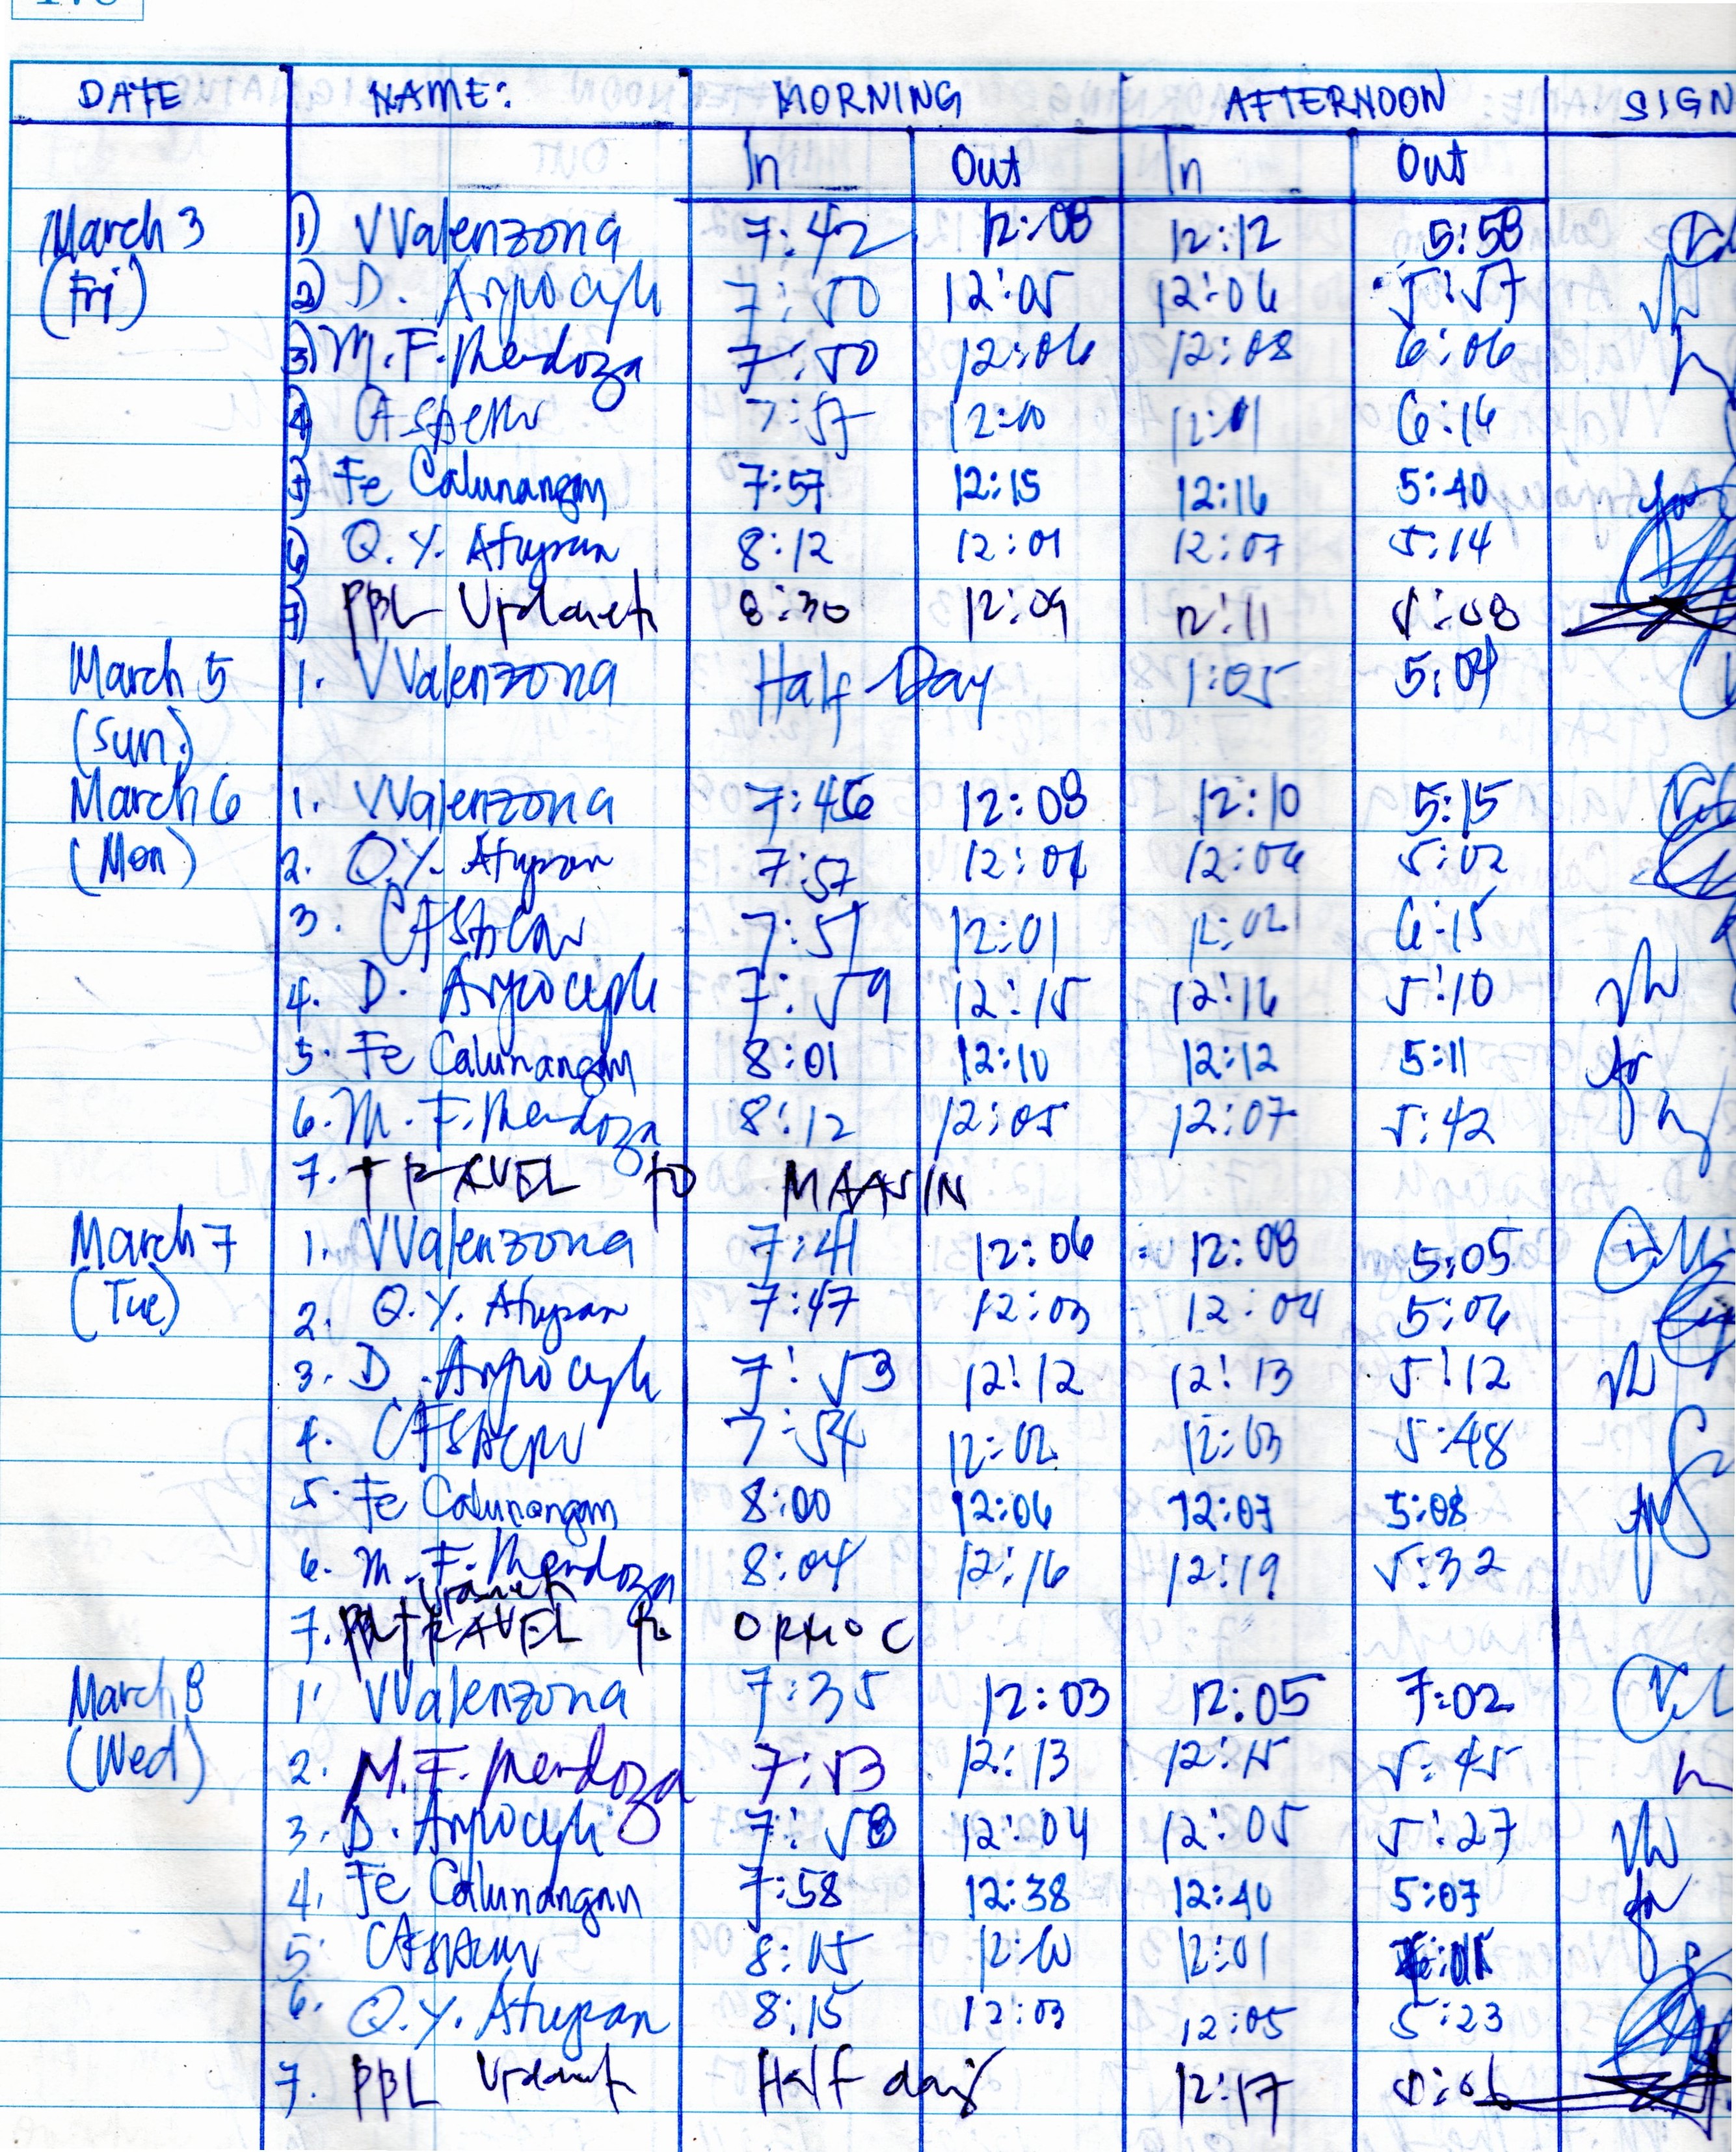 DATE NAME: MORNING AFTERNOON SIGN
In Out In Out
March 3 1) VValenzona 7:42 12:08 12:12 5:58
(Fri) 2) D. 7:50 12:05 12:06 5:57
3) M. F. Mendoza 7:50 12:06 12:08 6:06
4) 7:57 12:10 12:11 6:16
5) Fe Calunangan 7:57 12:15 12:16 5:40
6) Q. Y. Atupan 8:12 12:01 12:07 5:14
7) PBL 8:30 12:09 12:11 5:08
March 5 1. VValenzona Half Day 1:05 5:04
(Sun.)
March 6 1. VValenzona 7:46 12:08 12:10 5:15
(Mon) 2. Q.Y. Atupan 7:57 12:04 12:06 5:02
3. 7:57 12:01 12:02 6:15
4. D. 7:59 12:15 12:16 5:10
5. Fe Calunangan 8:01 12:10 12:12 5:11
6. M. F. Mendoza 8:12 12:05 12:07 5:42
7. TRAVEL TO MAASIN
March 7 1. VValenzona 7:41 12:06 12:08 5:05
(Tue) 2. Q. Y. Atupan 7:47 12:03 12:04 5:06
3. D. 7:53 12:12 12:13 5:12
4. 7:54 12:02 12:03 5:48
5. Fe Calunangan 8:00 12:06 12:07 5:08
6. M. F. Mendoza 8:04 12:16 12:19 5:32
7. PBL TRAVEL to ORMOC
March 8 1. VValenzona 7:35 12:03 12:05 7:02
(Wed) 2. M. F. Mendoza 7:53 12:13 12:15 5:45
3. D. 7:58 12:04 12:05 5:27
4. Fe Calunangan 7:58 12:38 12:40 5:07
5. 8:05 12:00 12:01
6. Q. Y. Atupan 8:15 12:03 12:05 5:23
7. PBL Half day 12:17 5:06